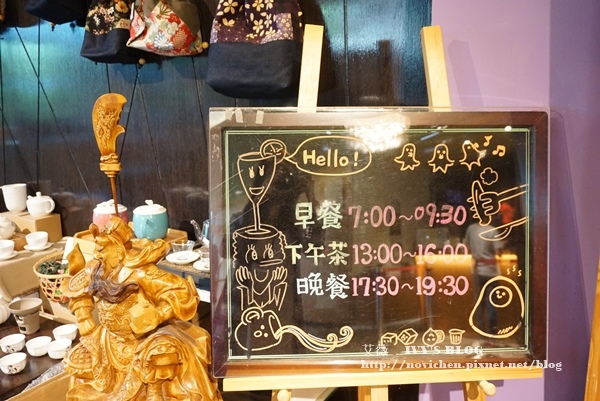 Hello!
早餐 7:00~09:30
下午茶 13:00~16:00
晚餐 17:30~19:30
艾薇 IVY'S BLOG
http://novichen.pixnet.net/blog